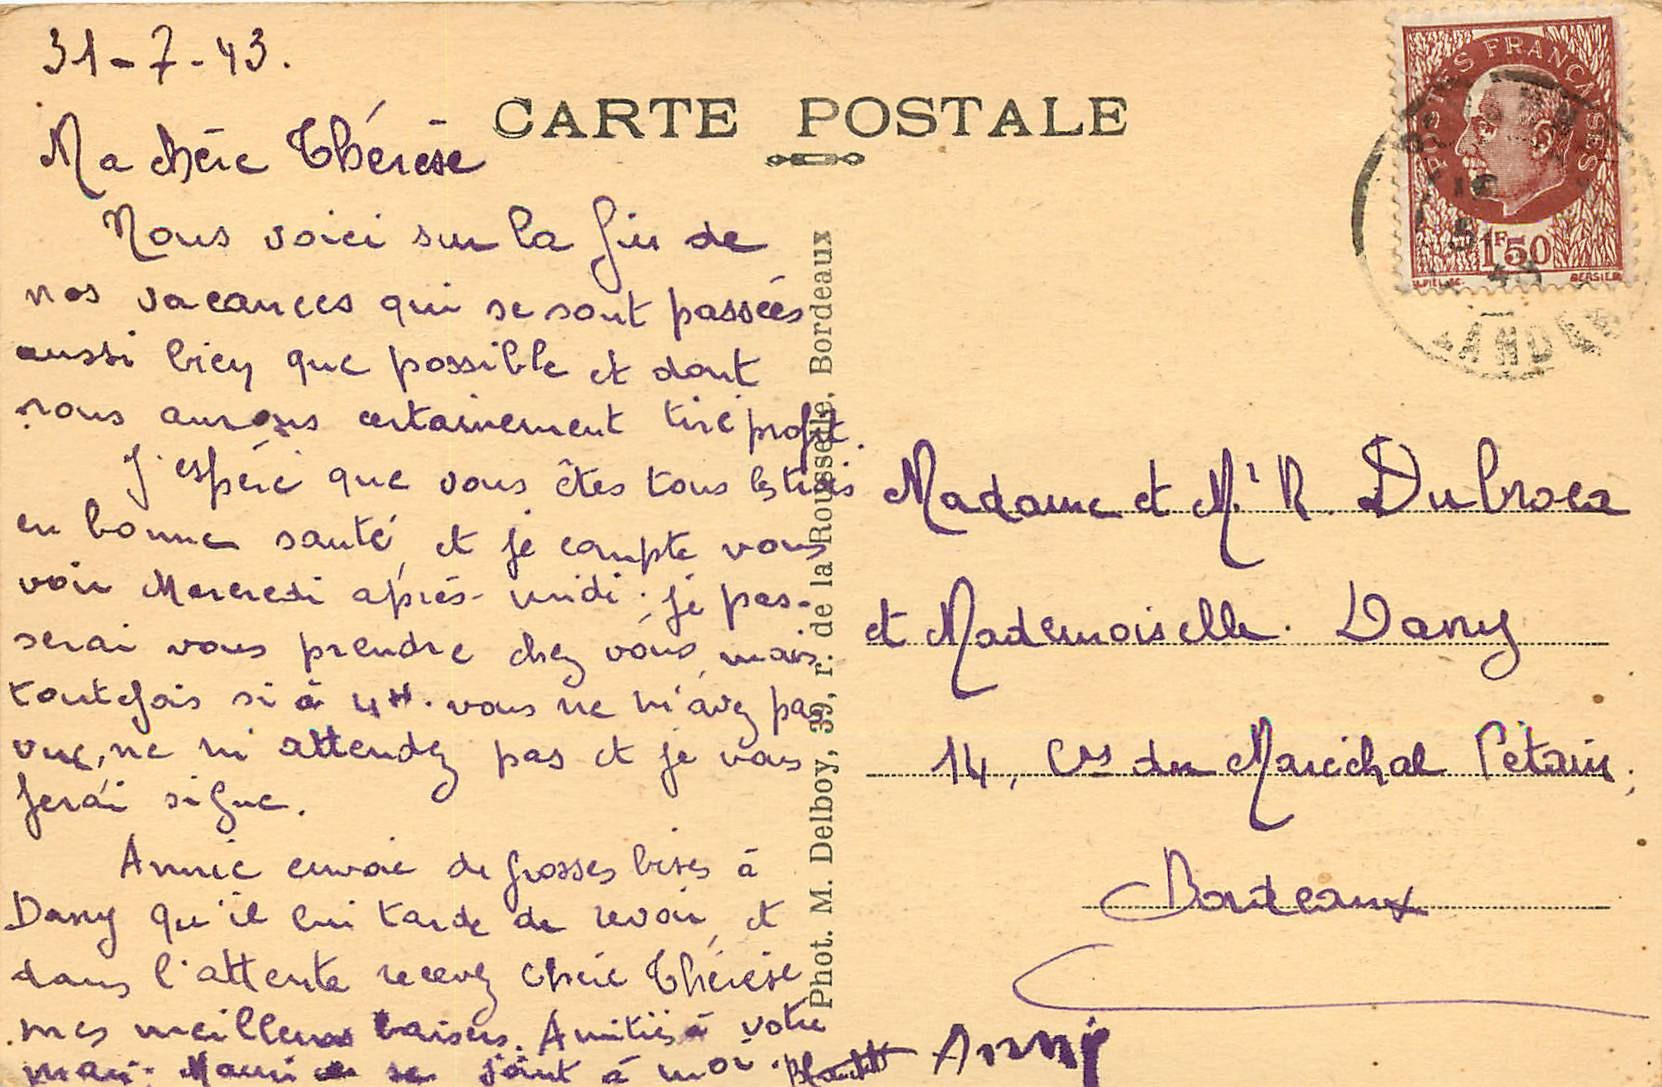 31-7-43.
CARTE POSTALE
Ma chère Thérèse
Nous voici sur la fin de
nos vacances qui se sont passées
aussi bien que possible et dont
nous aurons certainement tiré profit.
J'espère que vous êtes tous les trois
en bonne santé, et je compte vous
voir Mercredi après-midi; je pas-
serai vous prendre chez vous, mais
toutefois si à 4H. vous ne m'avez pas
vue, ne m'attendez pas et je vous
ferai signe.
Annie envoie de grosses bises à
Dany qu'il lui tarde de revoir, et
dans l'attente recevez chère Thérèse
mes meilleurs baisers. Amitiés à votre
mari. Maurice se joint à moi.
Anny
Phot. M. Delboy, 39, r. de la Rousselle, Bordeaux
POSTES FRANÇAISES
1F50
BERSIER
16
43
LANDES
Madame et Mr R. Dubroca
et Mademoiselle Dany
14, Crs du Maréchal Pétain,
Bordeaux